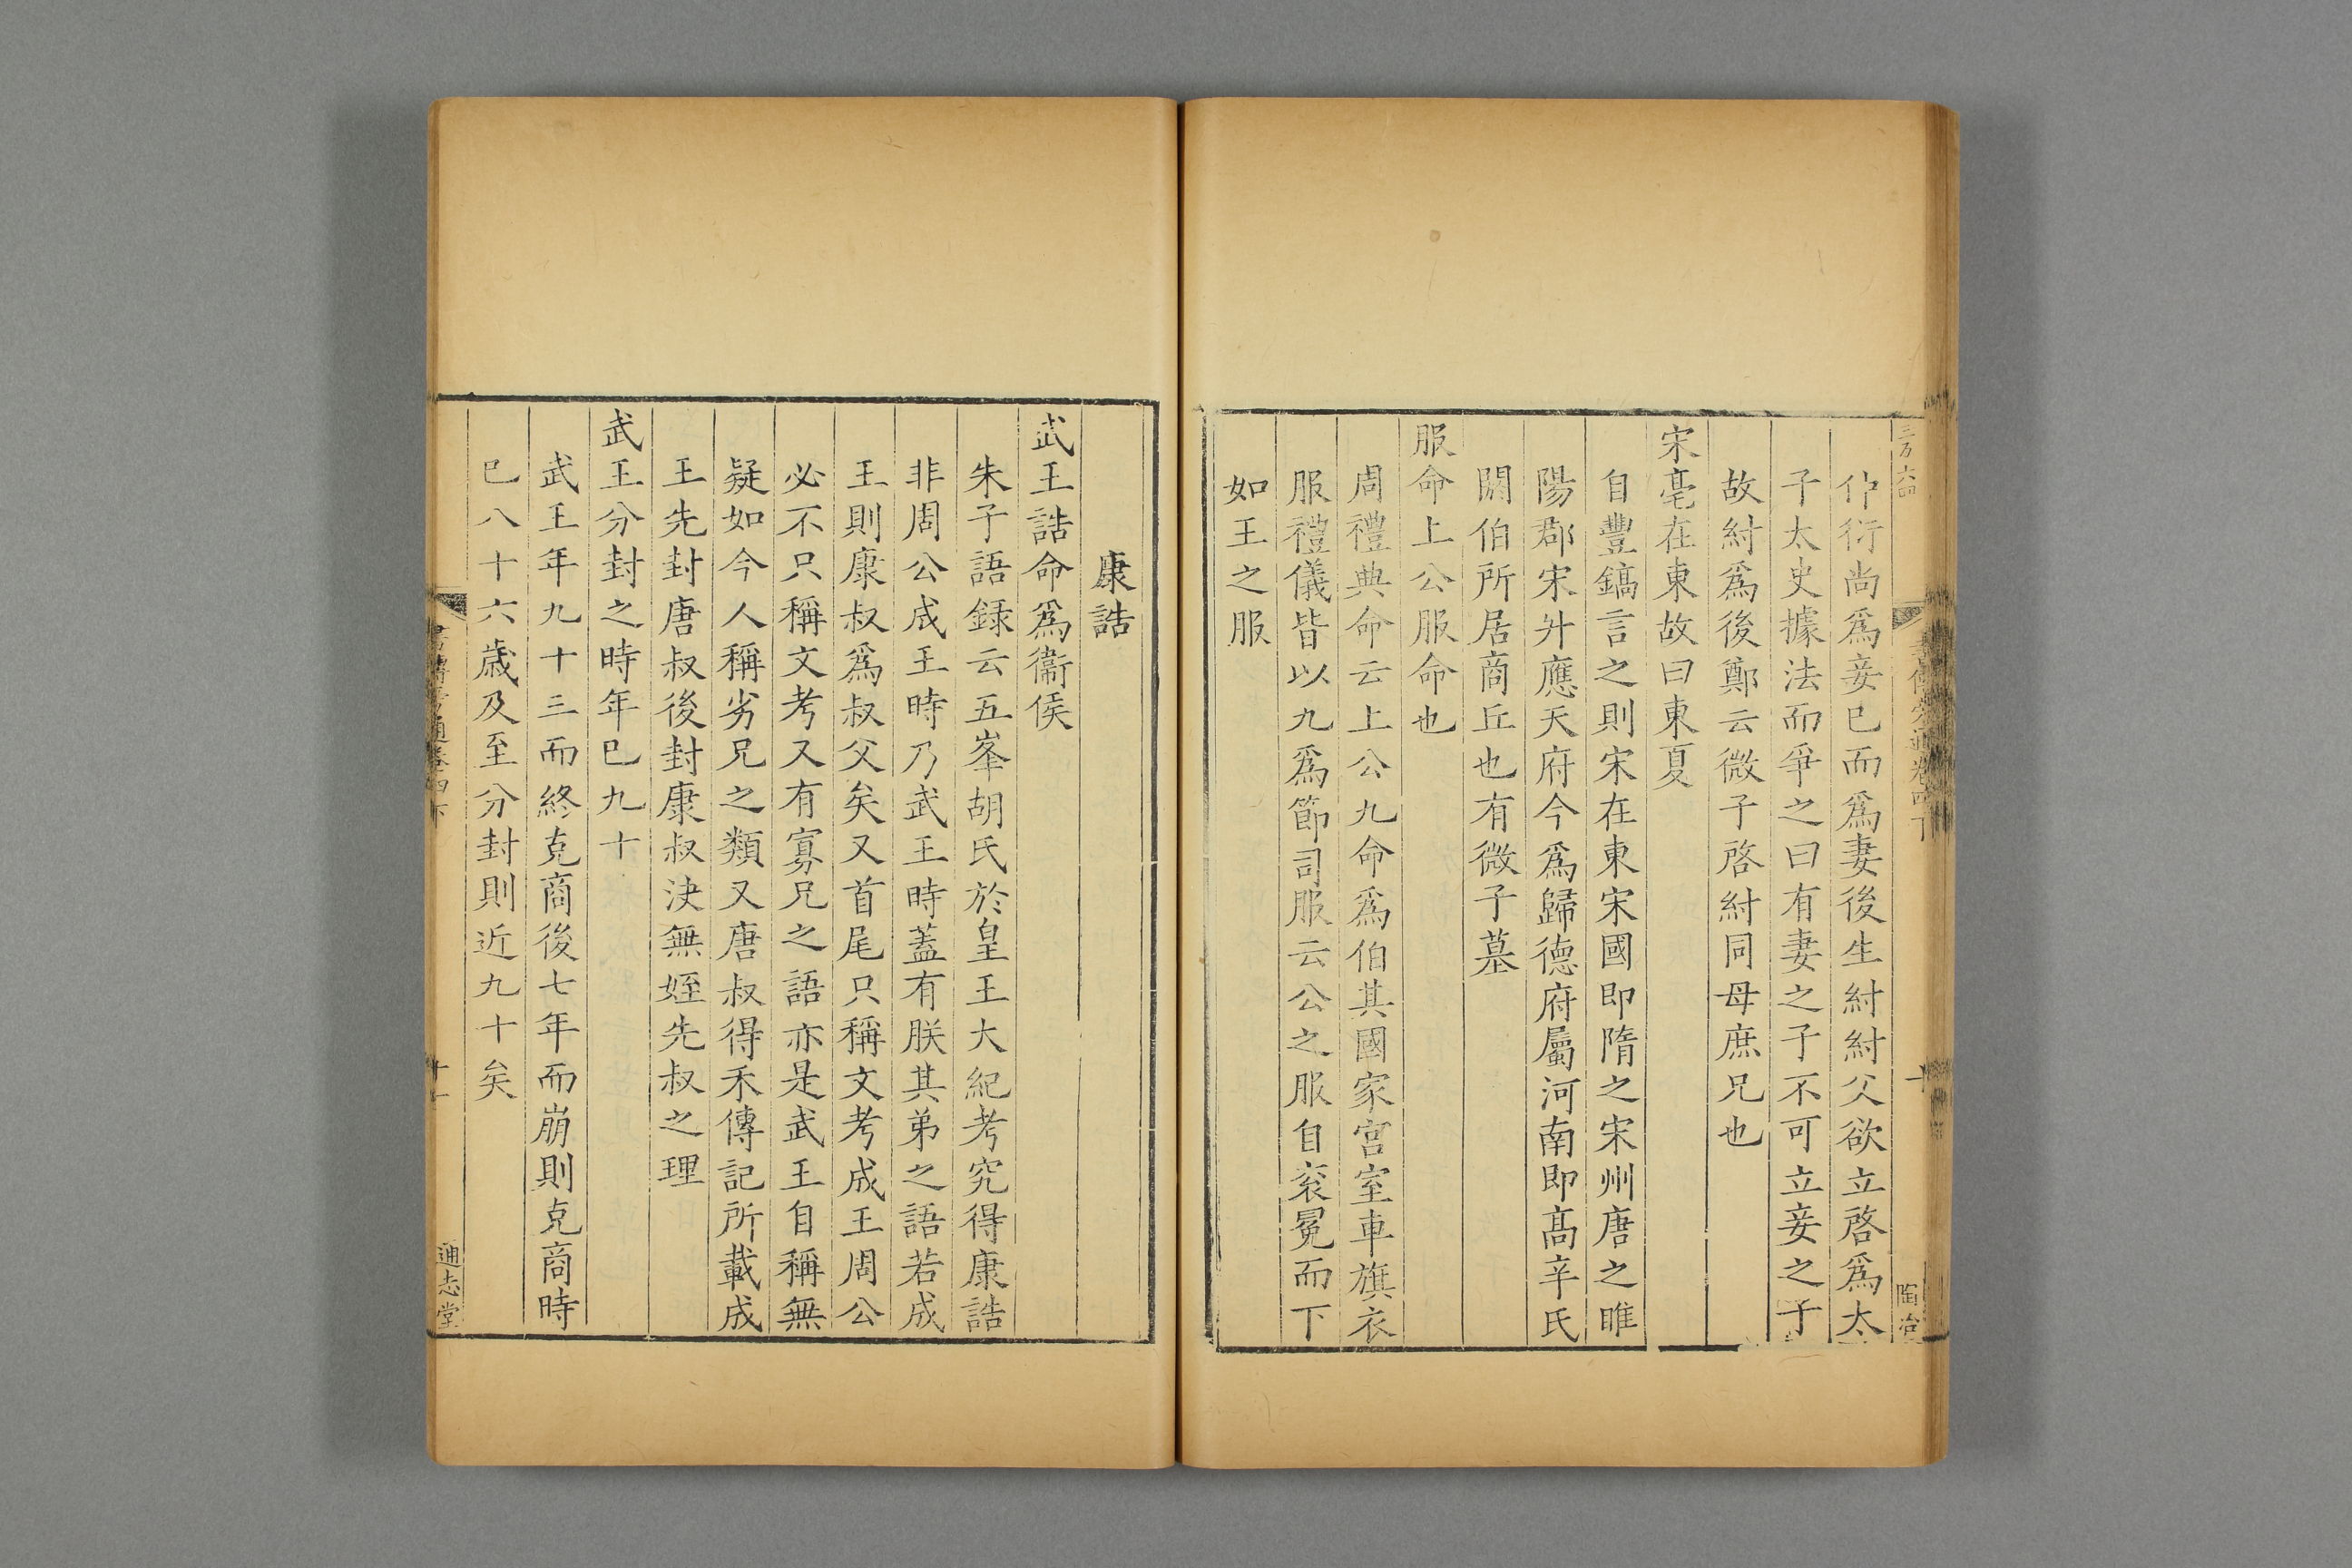 仲衍尚爲妾已而爲妻後生紂紂父欲立啓爲太
子太史據法而爭之曰有妻之子不可立妾之子
故紂爲後鄭云微子啓紂同母庶兄也
宋亳在東故曰東夏
自豐鎬言之則宋在東宋國即隋之宋州唐之睢
陽郡宋升應天府今爲歸德府屬河南即髙辛氏
閼伯所居商丘也有微子墓
服命上公服命也
周禮典命云上公九命爲伯其國家宮室車旗衣
服禮儀皆以九爲節司服云公之服自衮冕而下
如王之服
陶冶
康誥
武王誥命爲衞侯
朱子語録云五峯胡氏於皇王大紀考究得康誥
非周公成王時乃武王時蓋有朕其弟之語若成
王則康叔爲叔父矣又首尾只稱文考成王周公
必不只稱文考又有寡兄之語亦是武王自稱無
疑如今人稱劣兄之類又唐叔得禾傳記所載成
王先封唐叔後封康叔決無姪先叔之理
武王分封之時年已九十
武王年九十三而終克商後七年而崩則克商時
已八十六歲及至分封則近九十矣
通志堂